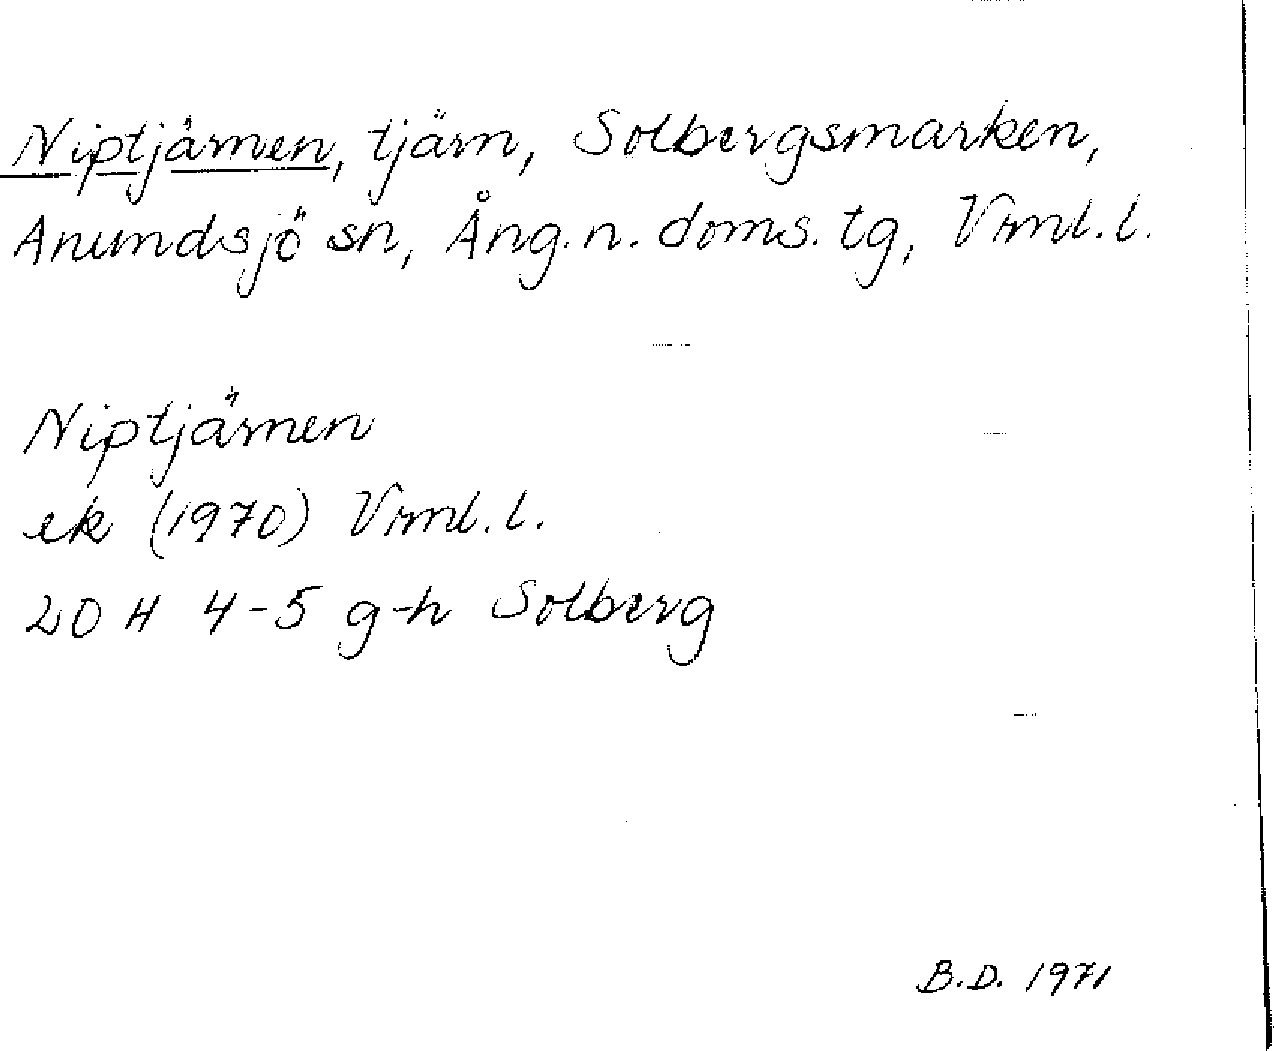 Niptjärnen, tjärn, Solbergsmarken,
Anundsjö sn, Ång. n. doms. tg, Vrml. l.
Niptjärnen
ek (1970) Vrml. l.
20 H 4-5 g-h Solberg
B.D. 1971